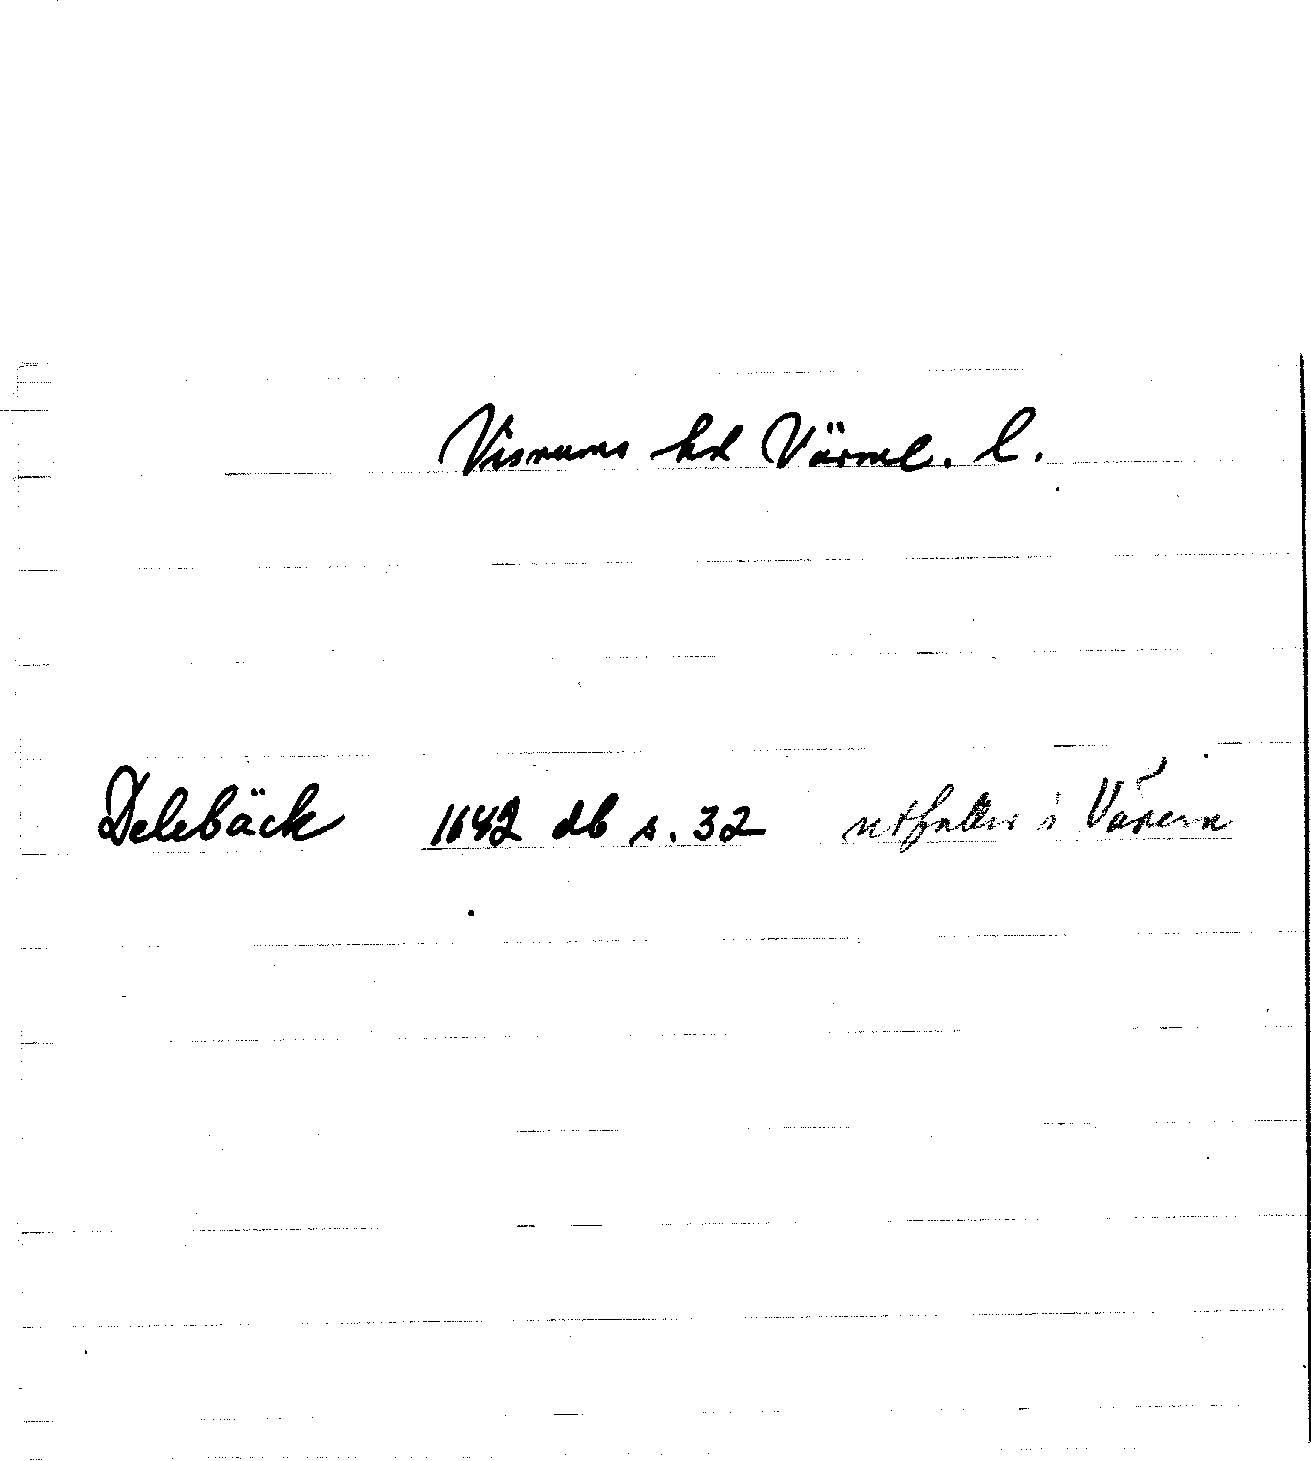 Visnums hd Värml. l.
Delebäck 1642 db s. 32 utfaller i Vänern